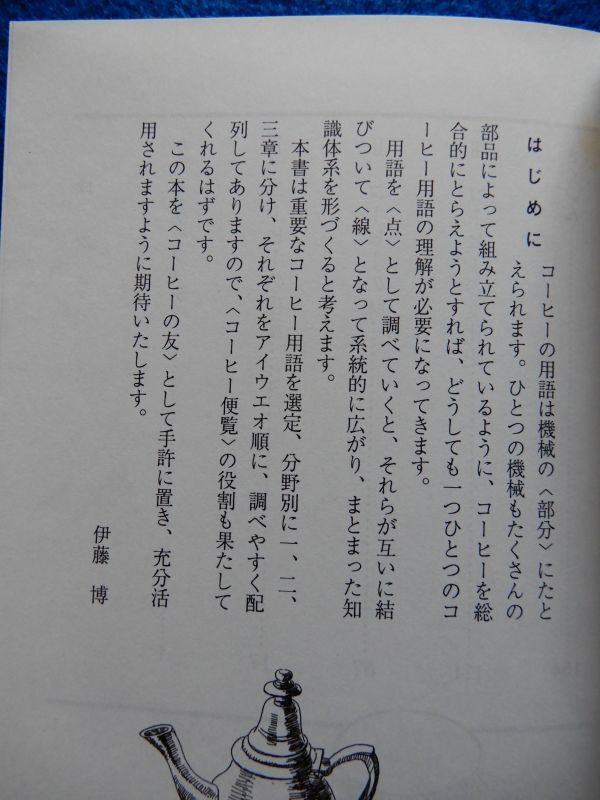 はじめに
コーヒーの用語は機械の〈部分〉にたと
えられます。ひとつの機械もたくさんの
部品によって組み立てられているように、コーヒーを総
合的にとらえようとすれば、どうしても一つひとつのコ
ーヒー用語の理解が必要になってきます。
用語を〈点〉として調べていくと、それらが互いに結
びついて〈線〉となって系統的に広がり、まとまった知
識体系を形づくると考えます。
本書は重要なコーヒー用語を選定、分野別に一、二、
三章に分け、それぞれをアイウエオ順に、調べやすく配
列してありますので、〈コーヒー便覧〉の役割も果たして
くれるはずです。
この本を〈コーヒーの友〉として手許に置き、充分活
用されますように期待いたします。
伊藤 博